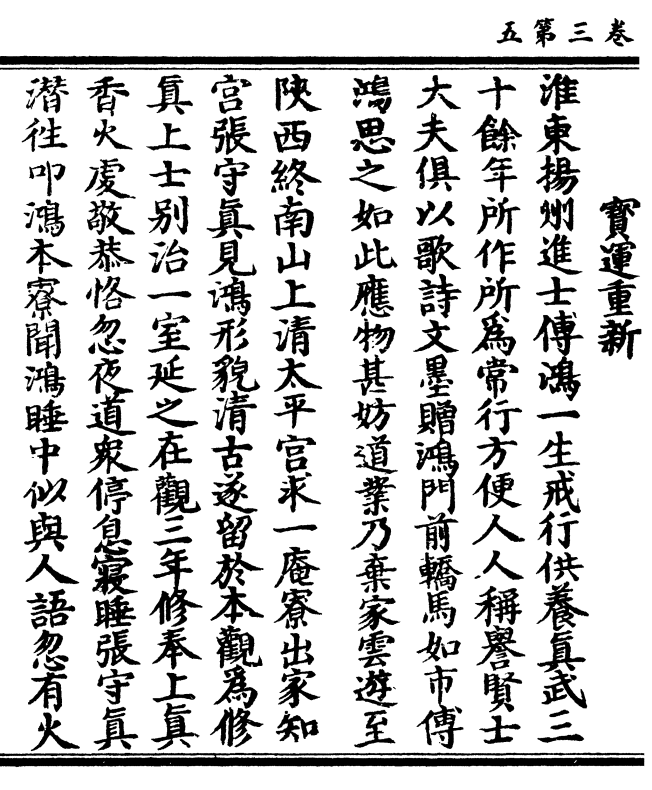 卷三第五
寳運重新
淮東揚州進士傅鴻一生戒行供養眞武三
十餘年所作所爲常行方便人人稱譽賢士
大夫俱以歌詩文墨贈鴻門前轎馬如市傅
鴻思之如此應物甚妨道業乃棄家雲遊至
陝西終南山上清太平宫求一庵寮出家知
宫張守眞見鴻形貌清古遂留於本觀爲修
眞上士别治一室延之在觀三年修奉上眞
香火虔敬恭恪忽夜道衆停息寢睡張守眞
潜徃叩鴻本寮聞鴻睡中似與人語忽有火